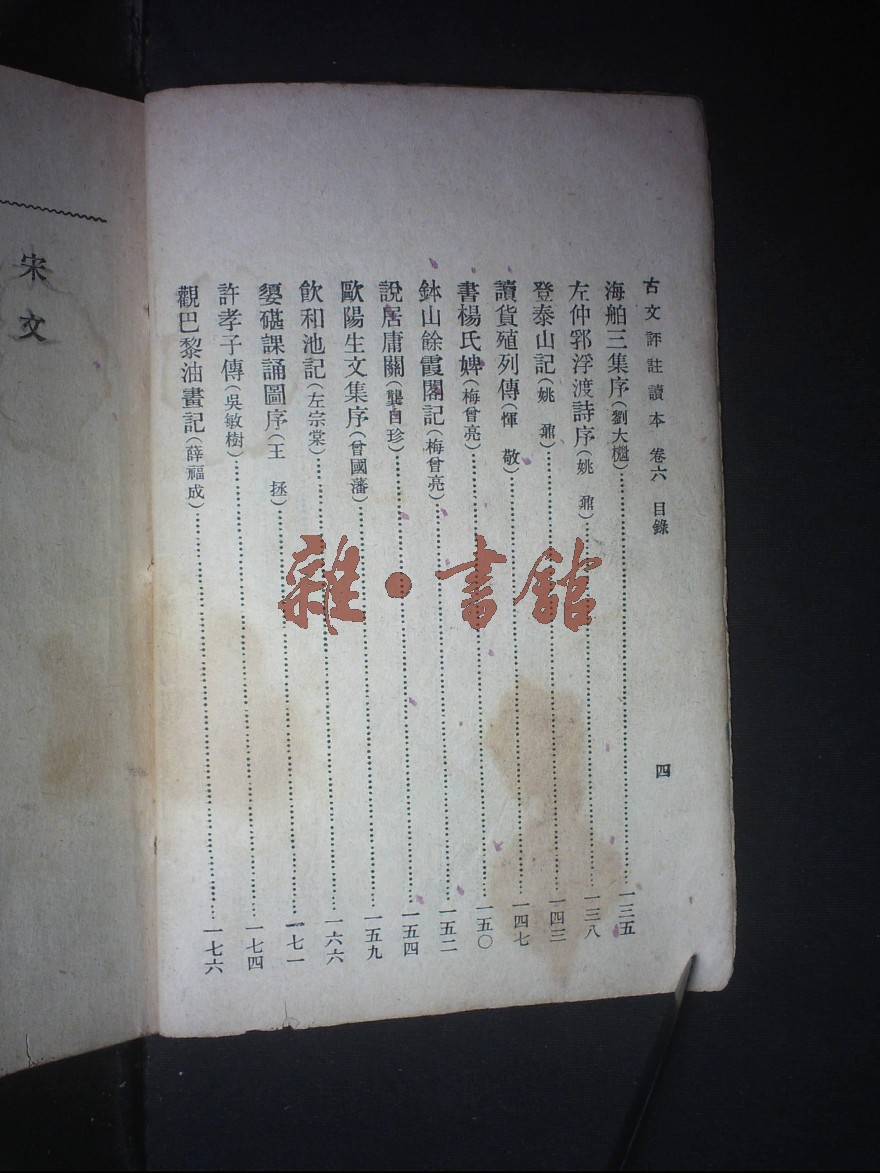 古文評註讀本 卷六 目錄 四
海舶三集序(劉大櫆)……一三五
左仲郛浮渡詩序(姚鼐)……一三八
登泰山記(姚鼐)……一四三
讀貨殖列傳(惲敬)……一四七
書楊氏婢(梅曾亮)……一五〇
鉢山餘霞閣記(梅曾亮)……一五二
說居庸關(龔自珍)……一五四
歐陽生文集序(曾國藩)……一五九
飲和池記(左宗棠)……一六六
媭碪課誦圖序(王拯)……一七一
許孝子傳(吳敏樹)……一七四
觀巴黎油畫記(薛福成)……一七六
宋文
雜·書館